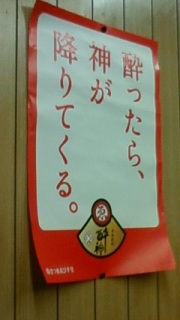 酔ったら、
神が
降りてくる。
酔神